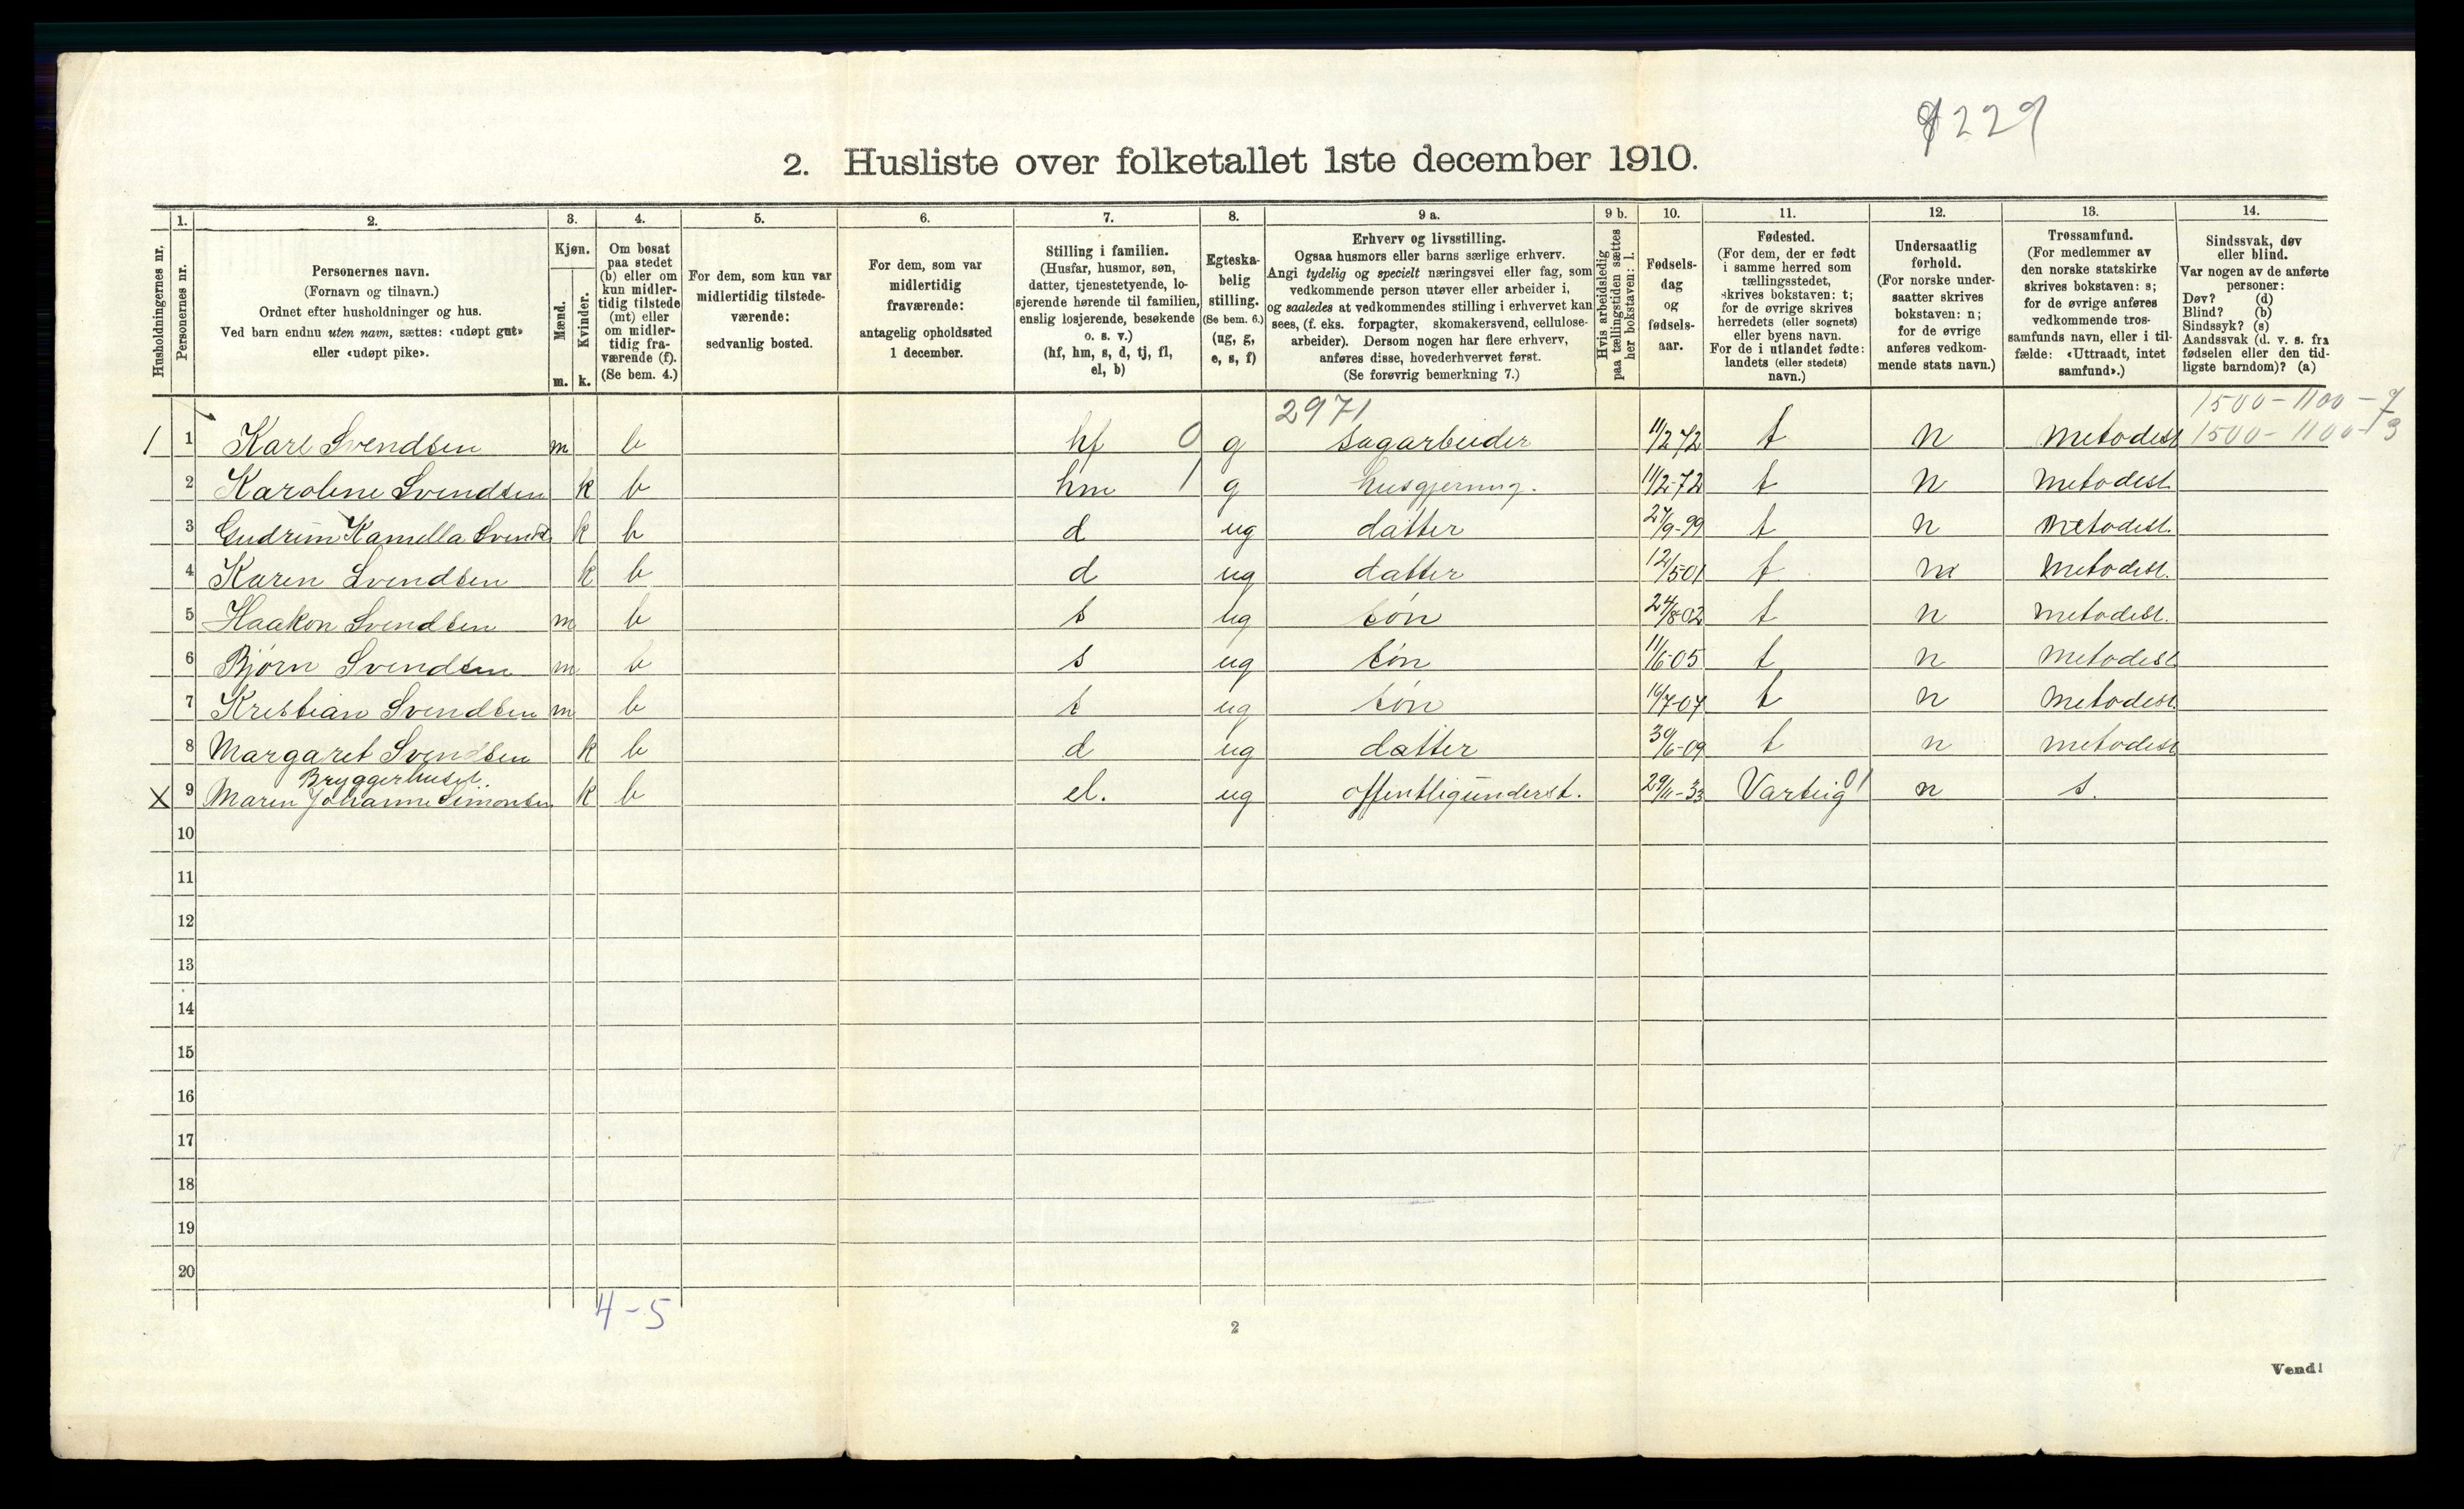 9229
2. Husliste over folketallet 1ste december 1910.
Husholdningernes nr.
1. Personernes nr.
2. Personernes navn. (Fornavn og tilnavn.) Ordnet efter husholdninger og hus. Ved barn endnu uten navn, sættes: «udøpt gut» eller «udøpt pike».
3. Kjøn. Mænd. m. Kvinder. k.
4. Om bosat paa stedet (b) eller om kun midlertidig tilstede (mt) eller om midlertidig fraværende (f). (Se bem. 4.)
5. For dem, som kun var midlertidig tilstedeværende: sedvanlig bosted.
6. For dem, som var midlertidig fraværende: antagelig opholdssted 1 december.
7. Stilling i familien. (Husfar, husmor, søn, datter, tjenestetyende, losjerende hørende til familien, enslig losjerende, besøkende o. s. v.) (hf, hm, s, d, tj, fl, el, b)
8. Egteskabelig stilling. (Se bem. 6.) (ug, g, e, s, f)
9 a. Erhverv og livsstilling. Ogsaa husmors eller barns særlige erhverv. Angi tydelig og specielt næringsvei eller fag, som vedkommende person utøver eller arbeider i, og saaledes at vedkommendes stilling i erhvervet kan sees, (f. eks. forpagter, skomakersvend, cellulosearbeider). Dersom nogen har flere erhverv, anføres disse, hovederhvervet først. (Se forøvrig bemerkning 7.)
9 b. Hvis arbeidsledig paa tællingstiden sættes her bokstaven: l.
10. Fødselsdag og fødselsaar.
11. Fødested. (For dem, der er født i samme herred som tællingsstedet, skrives bokstaven: t; for de øvrige skrives herredets (eller sognets) eller byens navn. For de i utlandet fødte: landets (eller stedets) navn.)
12. Undersaatlig forhold. (For norske undersaatter skrives bokstaven: n; for de øvrige anføres vedkommende stats navn.)
13. Trossamfund. (For medlemmer av den norske statskirke skrives bokstaven: s; for de øvrige anføres vedkommende trossamfunds navn, eller i tilfælde: «Uttraadt, intet samfund».)
14. Sindssvak, døv eller blind. Var nogen av de anførte personer: Døv? (d) Blind? (b) Sindssyk? (s) Aandssvak (d. v. s. fra fødselen eller den tidligste barndom)? (a)
2971 1500 - 1100 - 7
1 1 Karl Svendsen m b hf 0 g sagarbeider 11/2 72 t n metodest 1500 - 1100 - 3
2 Karoline Svendsen k b hm 1 g husgjerning. 11/2-72 t n metodest
3 Gudrun Kamella Svends k b d ug datter 27/9-99 t n metodest.
4 Karen Svendsen k b d ug datter 12/5 01 t n metodest.
5 Haakon Svendsen m b s ug søn 24/8-02 t n metodest.
6 Bjørn Svendsen m b s ug søn 11/6-05 t n metodest
7 Kristian Svendsen m b s ug søn 16/7-07 t n metodest
8 Margaret Svendsen k b d ug datter 30/6-09 t n metodest
Bryggerhuset
X 9 Maren Johanne Simonsen k b el. ug offentligunderst. 29/11-33 Varteig 01 n s.
10
11
12
13
14
15
16
17
18
19
20
4-5
2
Vend!